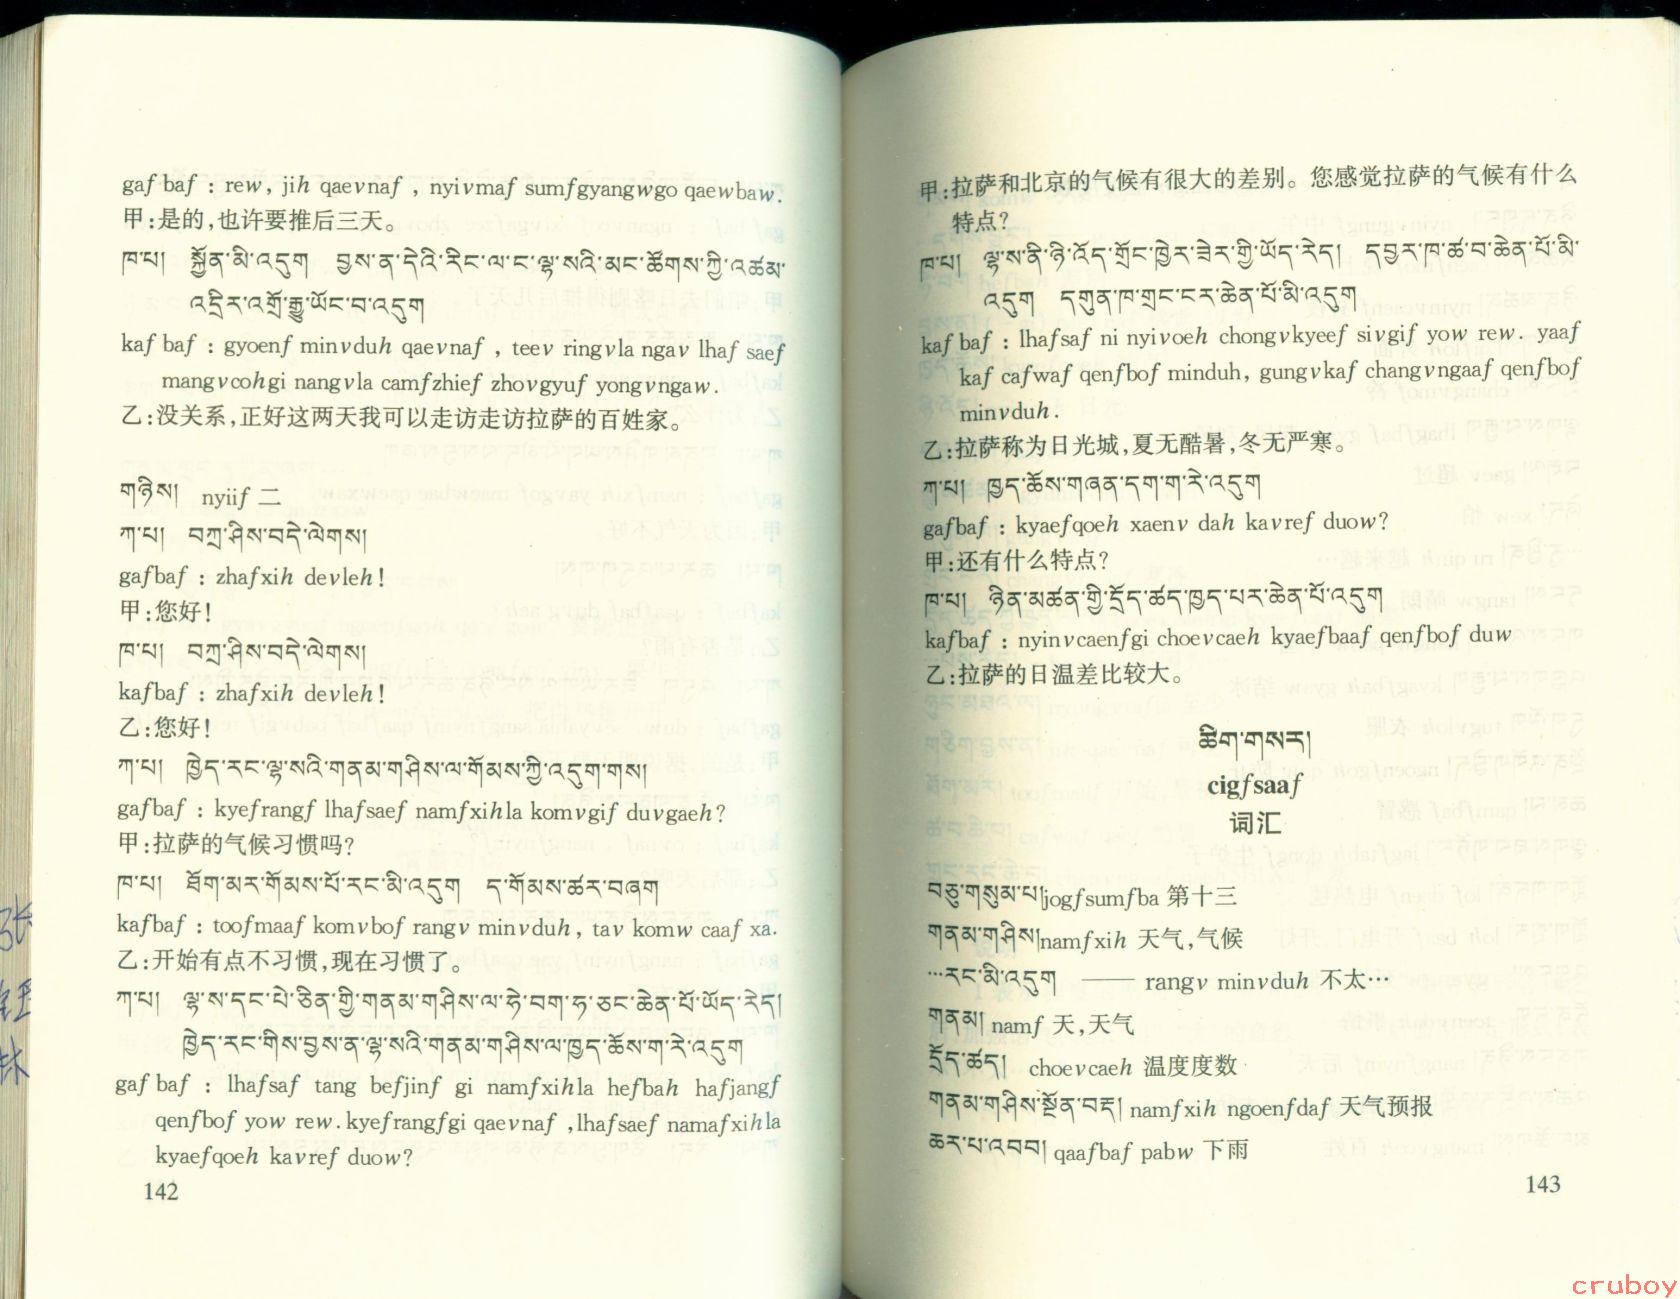 gafbaf : rew, jih qaevnaf , nyivmaf sumfgyangwgo qaewbaw.
甲:是的,也许要推后三天。
ཁ་པ། སྐྱོན་མི་འདུག བྱས་ན་དེའི་རིང་ལ་ང་ལྷ་སའི་མང་ཚོགས་ཀྱི་འཚམ་
འདྲིར་འགྲོ་རྒྱུ་ཡོང་བ་འདུག
kafbaf : gyoenf minvduh qaevnaf , teev ringvla ngav lhaf saef
mangvcohgi nangvla camfzhief zhovgyuf yongvngaw.
乙:没关系,正好这两天我可以走访走访拉萨的百姓家。
གཉིས། nyiif 二
ཀ་པ། བཀྲ་ཤིས་བདེ་ལེགས།
gafbaf : zhafxih devleh!
甲:您好!
ཁ་པ། བཀྲ་ཤིས་བདེ་ལེགས།
kafbaf : zhafxih devleh!
乙:您好!
ཀ་པ། ཁྱེད་རང་ལྷ་སའི་གནམ་གཤིས་ལ་གོམས་ཀྱི་འདུག་གས།
gafbaf : kyefrangf lhafsaef namfxihla komvgif duvgaeh?
甲:拉萨的气候习惯吗?
ཁ་པ། ཐོག་མར་གོམས་པོ་རང་མི་འདུག ད་གོམས་ཚར་བཞག
kafbaf : toofmaaf komvbof rangv minvduh, tav komw caaf xa.
乙:开始有点不习惯,现在习惯了。
ཀ་པ། ལྷ་ས་དང་པེ་ཅིན་གྱི་གནམ་གཤིས་ལ་ཧེ་བག་ཧ་ཅང་ཆེན་པོ་ཡོད་རེད།
ཁྱེད་རང་གིས་བྱས་ན་ལྷ་སའི་གནམ་གཤིས་ལ་ཁྱད་ཆོས་ག་རེ་འདུག
gafbaf : lhafsaf tang befjinf gi namfxihla hefbah hafjangf
qenfbof yow rew. kyefrangfgi qaevnaf ,lhafsaef namafxihla
kyaefqoeh kavref duow?
142
甲:拉萨和北京的气候有很大的差别。您感觉拉萨的气候有什么
特点?
ཁ་པ། ལྷ་ས་ནི་ཉི་འོད་གྲོང་ཁྱེར་ཟེར་གྱི་ཡོད་རེད། དབྱར་ཁ་ཚ་བ་ཆེན་པོ་མི་
འདུག དགུན་ཁ་གྲང་ངར་ཆེན་པོ་མི་འདུག
kafbaf : lhafsaf ni nyivoeh chongvkyeef sivgif yow rew. yaaf
kaf cafwaf qenfbof minduh, gungvkaf changvngaaf qenfbof
minvduh.
乙:拉萨称为日光城,夏无酷暑,冬无严寒。
ཀ་པ། ཁྱད་ཆོས་གཞན་དག་ག་རེ་འདུག
gafbaf : kyaefqoeh xaenv dah kavref duow?
甲:还有什么特点?
ཁ་པ། ཉིན་མཚན་གྱི་དྲོད་ཚད་ཁྱད་པར་ཆེན་པོ་འདུག
kafbaf : nyinvcaenfgi choevcaeh kyaefbaaf qenfbof duw
乙:拉萨的日温差比较大。
ཚིག་གསར།
cigfsaaf
词汇
བཅུ་གསུམ་པ།jogfsumfba 第十三
གནམ་གཤིས།namfxih 天气,气候
…རང་མི་འདུག —— rangv minvduh 不太…
གནམ། namf 天,天气
དྲོད་ཚད། choevcaeh 温度度数
གནམ་གཤིས་སྔོན་བརྡ། namfxih ngoenfdaf 天气预报
ཆར་པ་འབབ། qaafbaf pabw 下雨
143
cruboy